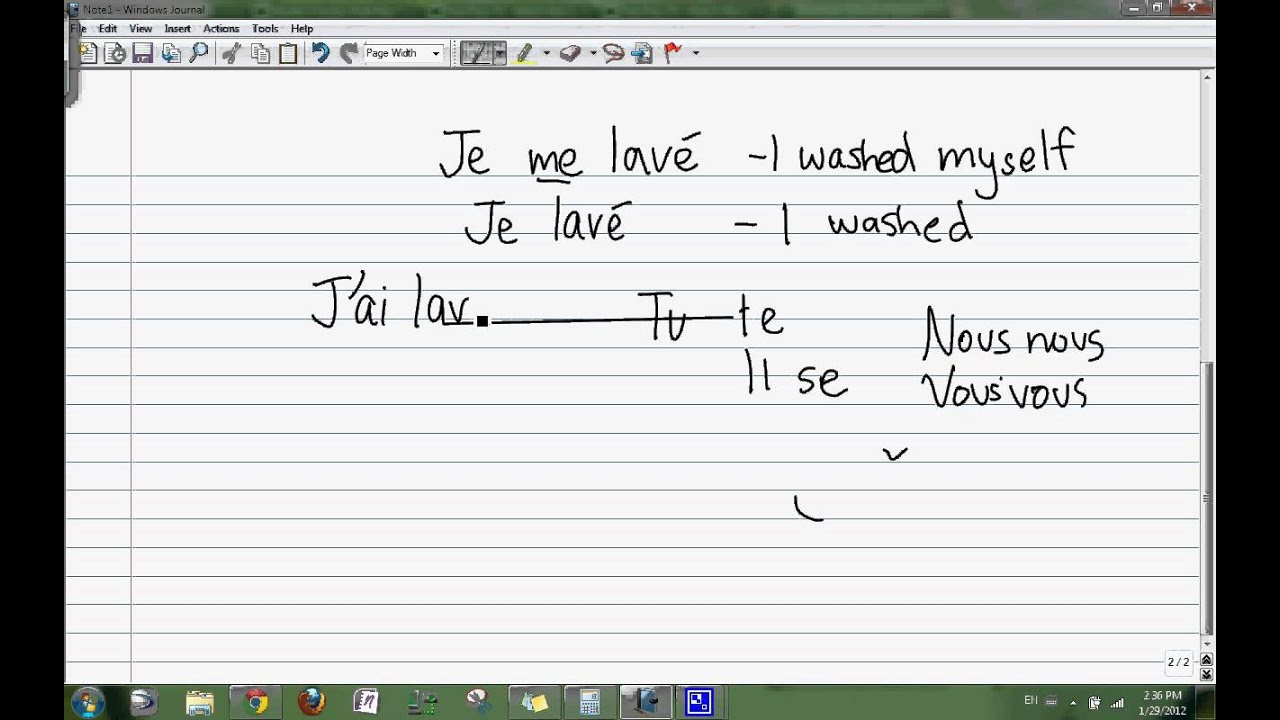 Note1 - Windows Journal
File Edit View Insert Actions Tools Help
Page Width
Je me lavé - I washed myself
Je lavé - I washed
J'ai lav
Tu te
Il se
Nous nous
Vous vous
2 / 2
EN
2:36 PM
1/29/2012